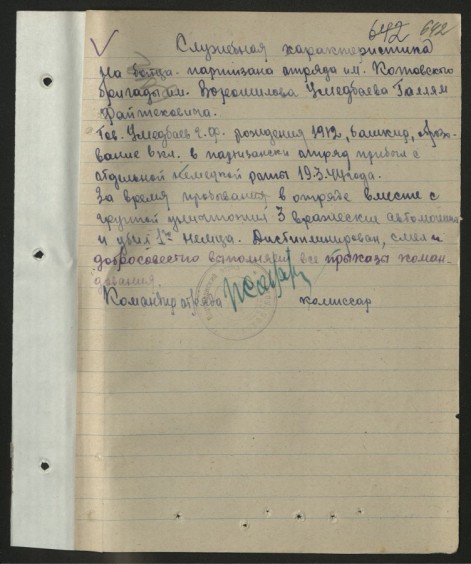 642 642
Служебная характеристика
на бойца партизана отряда им. Котовского
бригады им. Ворошилова Умедбаева Галлям
Тов. Умедбаев г. ф. рождения 1912, башкир,
6 кл. в партизанский отряд прибыл с
отдельной немецкой роты 19.3.44 года.
За время пребывания в отряде вместе с
группой уничтожил 3 вражеских
и убил 1го немца. Дисциплинирован, смел и
добросовестно выполнял все приказы коман-
дования.
Командир отряда комиссар